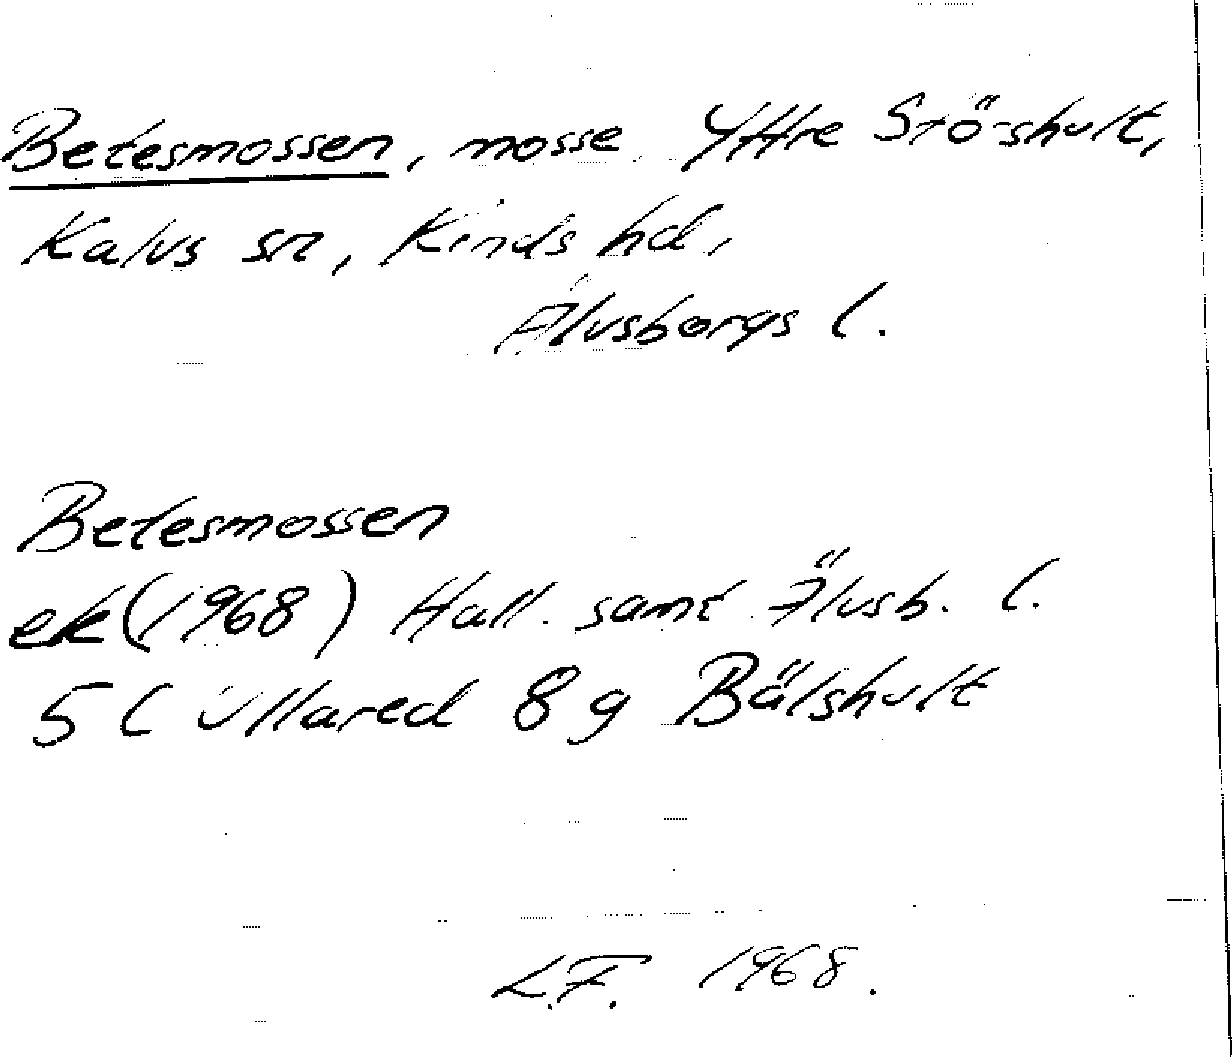 Betesmossen, mosse Yttre Stö-shult,
Kalvs sn, Kinds hd,
Älvsborgs l.
Betesmossen
ek (1968) Hall. samt Älvsb. l.
5 C Ullared 8 g Bälshult
L.F. 1968.